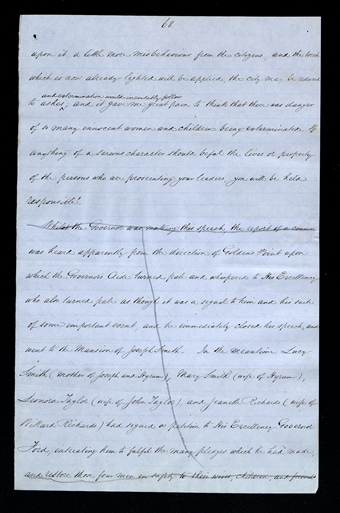 60
upon it a little more misbehaviour from the citizens, and the torch
which is now already lighted will be applied the city may be
and extermination would inevitably follow
to ashes, and it gave me great pain to think that there was danger
of so many innocent women and children being exterminated. If
anything of a serious character should befal the lives or property
of the persons who are prosecuting your leaders you will be held
responsible".
Whilst the Governor was making this speech, the report of a cannon
was heard apparently from the direction of Golden's Point upon
which the Governors Aide turned pale and whispered to His Excellency
who also turned pale as though it was a signal to him and his suite
of some important event, and he immediately closed his speech, and
went to the Mansion of Joseph Smith. In the meantime Lucy
Smith (mother of Joseph and Hyrum), Mary Smith (wife of Hyrum),
Leonora Taylor (wife of John Taylor) and Jennetta Richards (wife of
Willard Richards) had signed a petition to His Excellency Governor
Ford, intreating him to fulfil the many pledges which he had made,
and restore those four men in safety to their wives, children, and friends